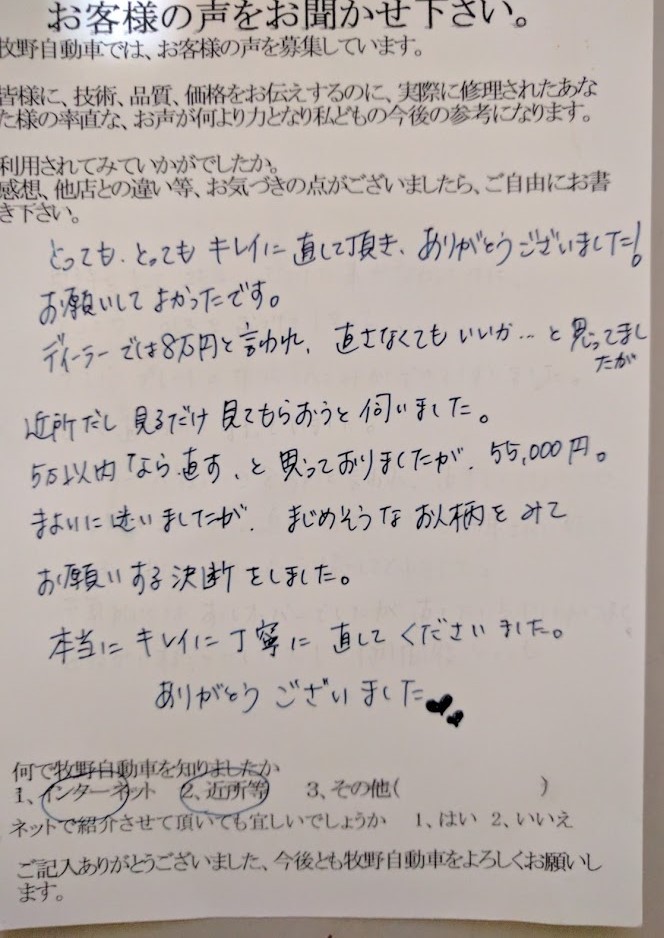 お客様の声をお聞かせ下さい。
牧野自動車では、お客様の声を募集しています。
皆様に、技術、品質、価格をお伝えするのに、実際に修理されたあな
た様の率直な、お声が何より力となり私どもの今後の参考になります。
利用されてみていかがでしたか。
感想、他店との違い等、お気づきの点がございましたら、ご自由にお書
き下さい。
とっても、とっても キレイに 直して頂き、ありがとうございました!
お願いして よかったです。
ディーラーでは8万円と言われ、直さなくてもいいか…と思ってまし
たが
近所だし 見るだけ 見てもらおうと 伺いました。
5万以内なら直す、と思っておりましたが、55,000円。
まよいに迷いましたが、まじめそうな お人柄をみて
お願いする決断をしました。
本当に キレイに 丁寧に 直してくださいました。
ありがとう ございました
何で牧野自動車を知りましたか
1、インターネット 2、近所等 3、その他( )
ネットで紹介させて頂いても宜しいでしょうか 1、はい 2、いいえ
ご記入ありがとうございました、今後とも牧野自動車をよろしくお願いし
ます。